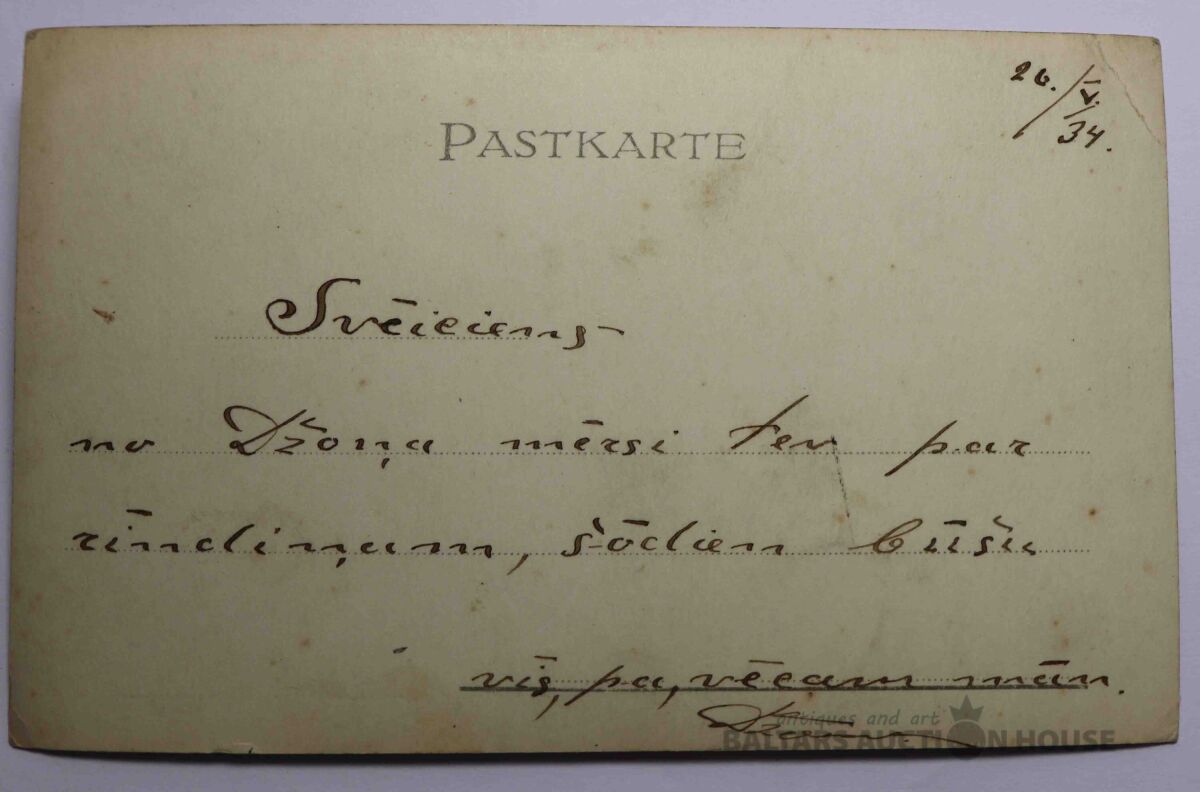 26./V./34.
PASTKARTE
Svēiciens
no Džoņa mērsi tev par
rīndiņam, šōdien būšu
vis, pa, vēcam mān.
antiques and art
BALTARS AUCTION HOUSE